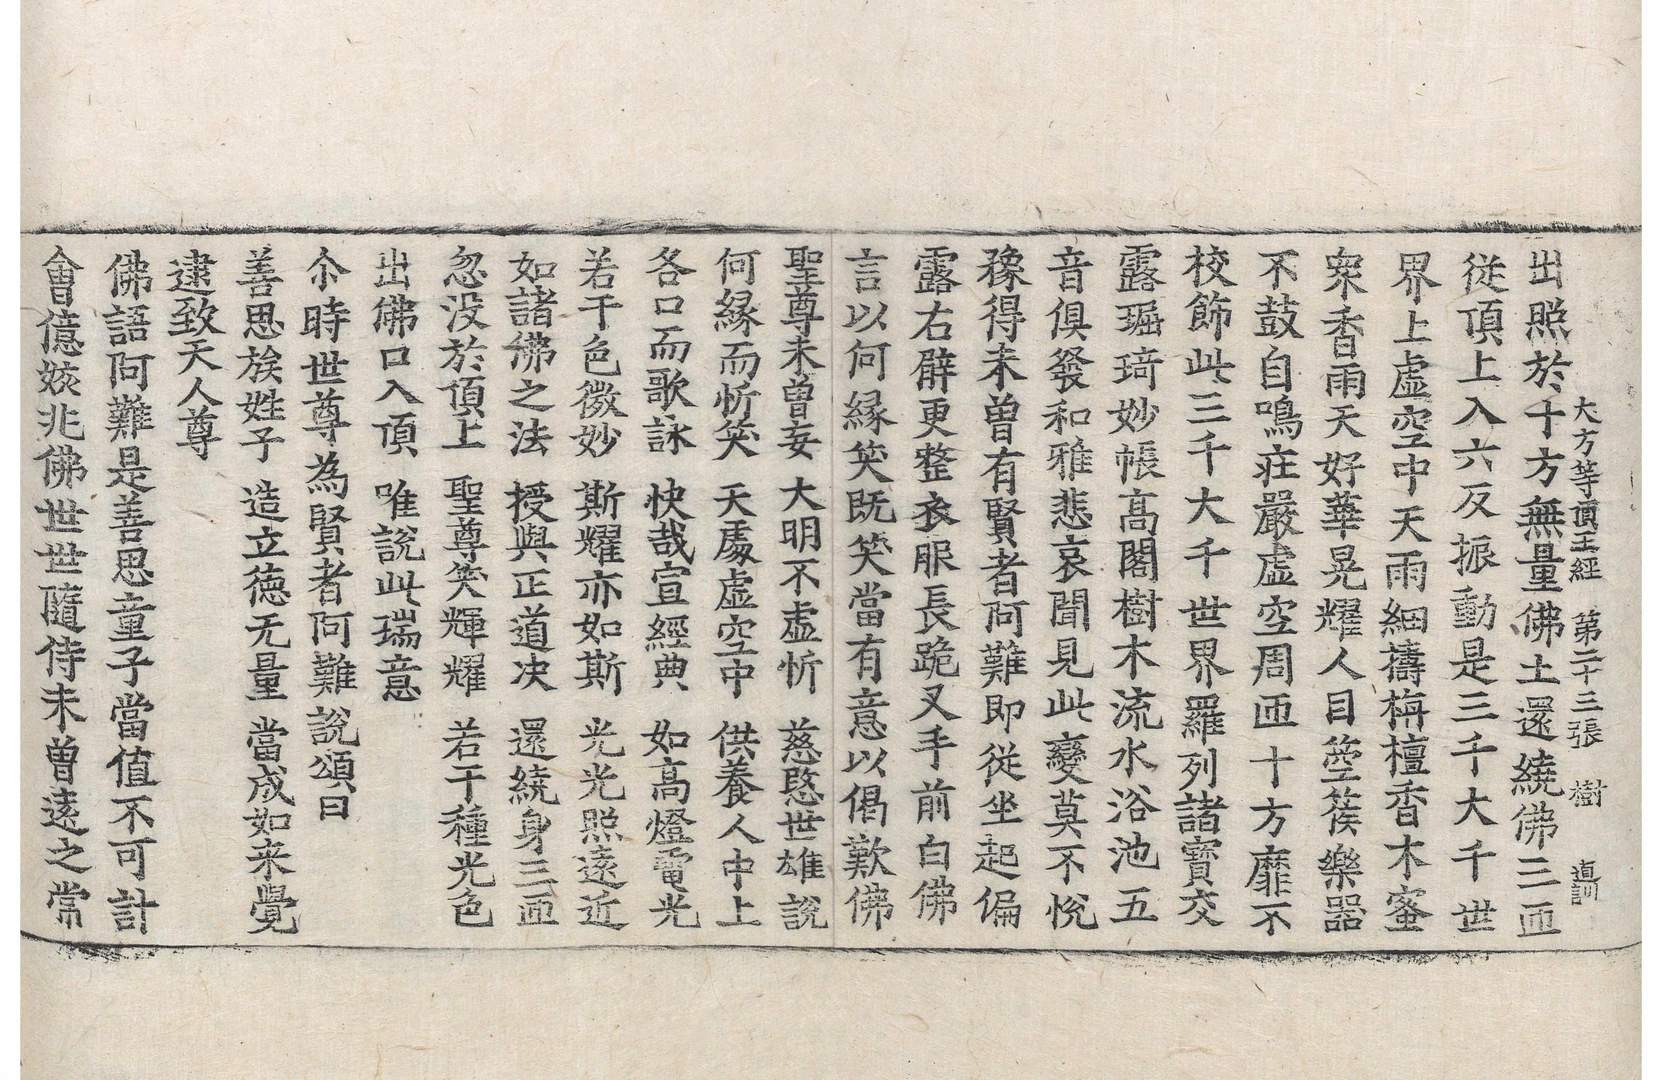 大方等頂王經　第二十三張　樹　道訓
出照於十方無量佛土還繞佛三匝
從頂上入六反振動是三千大千世
界上虛空中天雨細擣栴檀香木蜜
衆香雨天好華晃耀人目箜篌樂器
不鼓自鳴莊嚴虛空周匝十方靡不
校飾此三千大千世界羅列諸寶交
露琚琦妙帳高閣樹木流水浴池五
音俱發和雅悲哀聞見此變莫不悅
豫得未曾有賢者阿難即從坐起偏
露右臂更整衣服長跪叉手前白佛
言以何緣笑既笑當有意以偈歎佛
聖尊未曾妄　大明不虛忻　慈愍世雄說
何緣而忻笑　天處虛空中　供養人中上
各口而歌詠　快哉宣經典　如高燈電光
若干色微妙　斯耀亦如斯　光光照遠近
如諸佛之法　授與正道決　還繞身三匝
忽沒於頂上　聖尊笑輝耀　若干種光色
出佛口入頂　唯說此瑞意
尒時世尊為賢者阿難說頌曰
善思族姓子　造立德无量　當成如来覺
逮致天人尊
佛語阿難是善思童子當值不可計
會億姟兆佛世世隨侍未曾遠之常